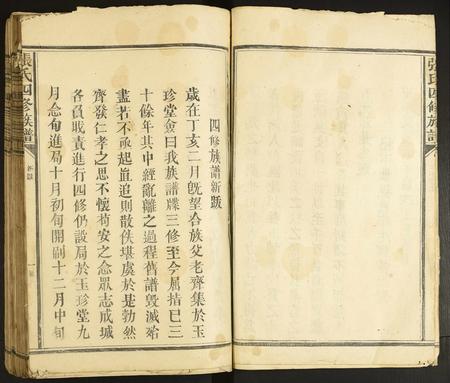 張氏四修族譜
四修族譜新跋
歲在丁亥二月旣望合族父老齊集於玉
珍堂僉曰我族譜牒三修至今屈指已三
十餘年其中經亂離之過程舊譜毀滅殆
盡若不亟起直追則散佚堪虞於是勃然
齊發仁孝之思不懷苟安之念眾志成城
各負職責進行四修仍設局於玉珍堂九
月念旬進局十月初旬開劂十二月中旬
新跋
一
張氏四修族譜